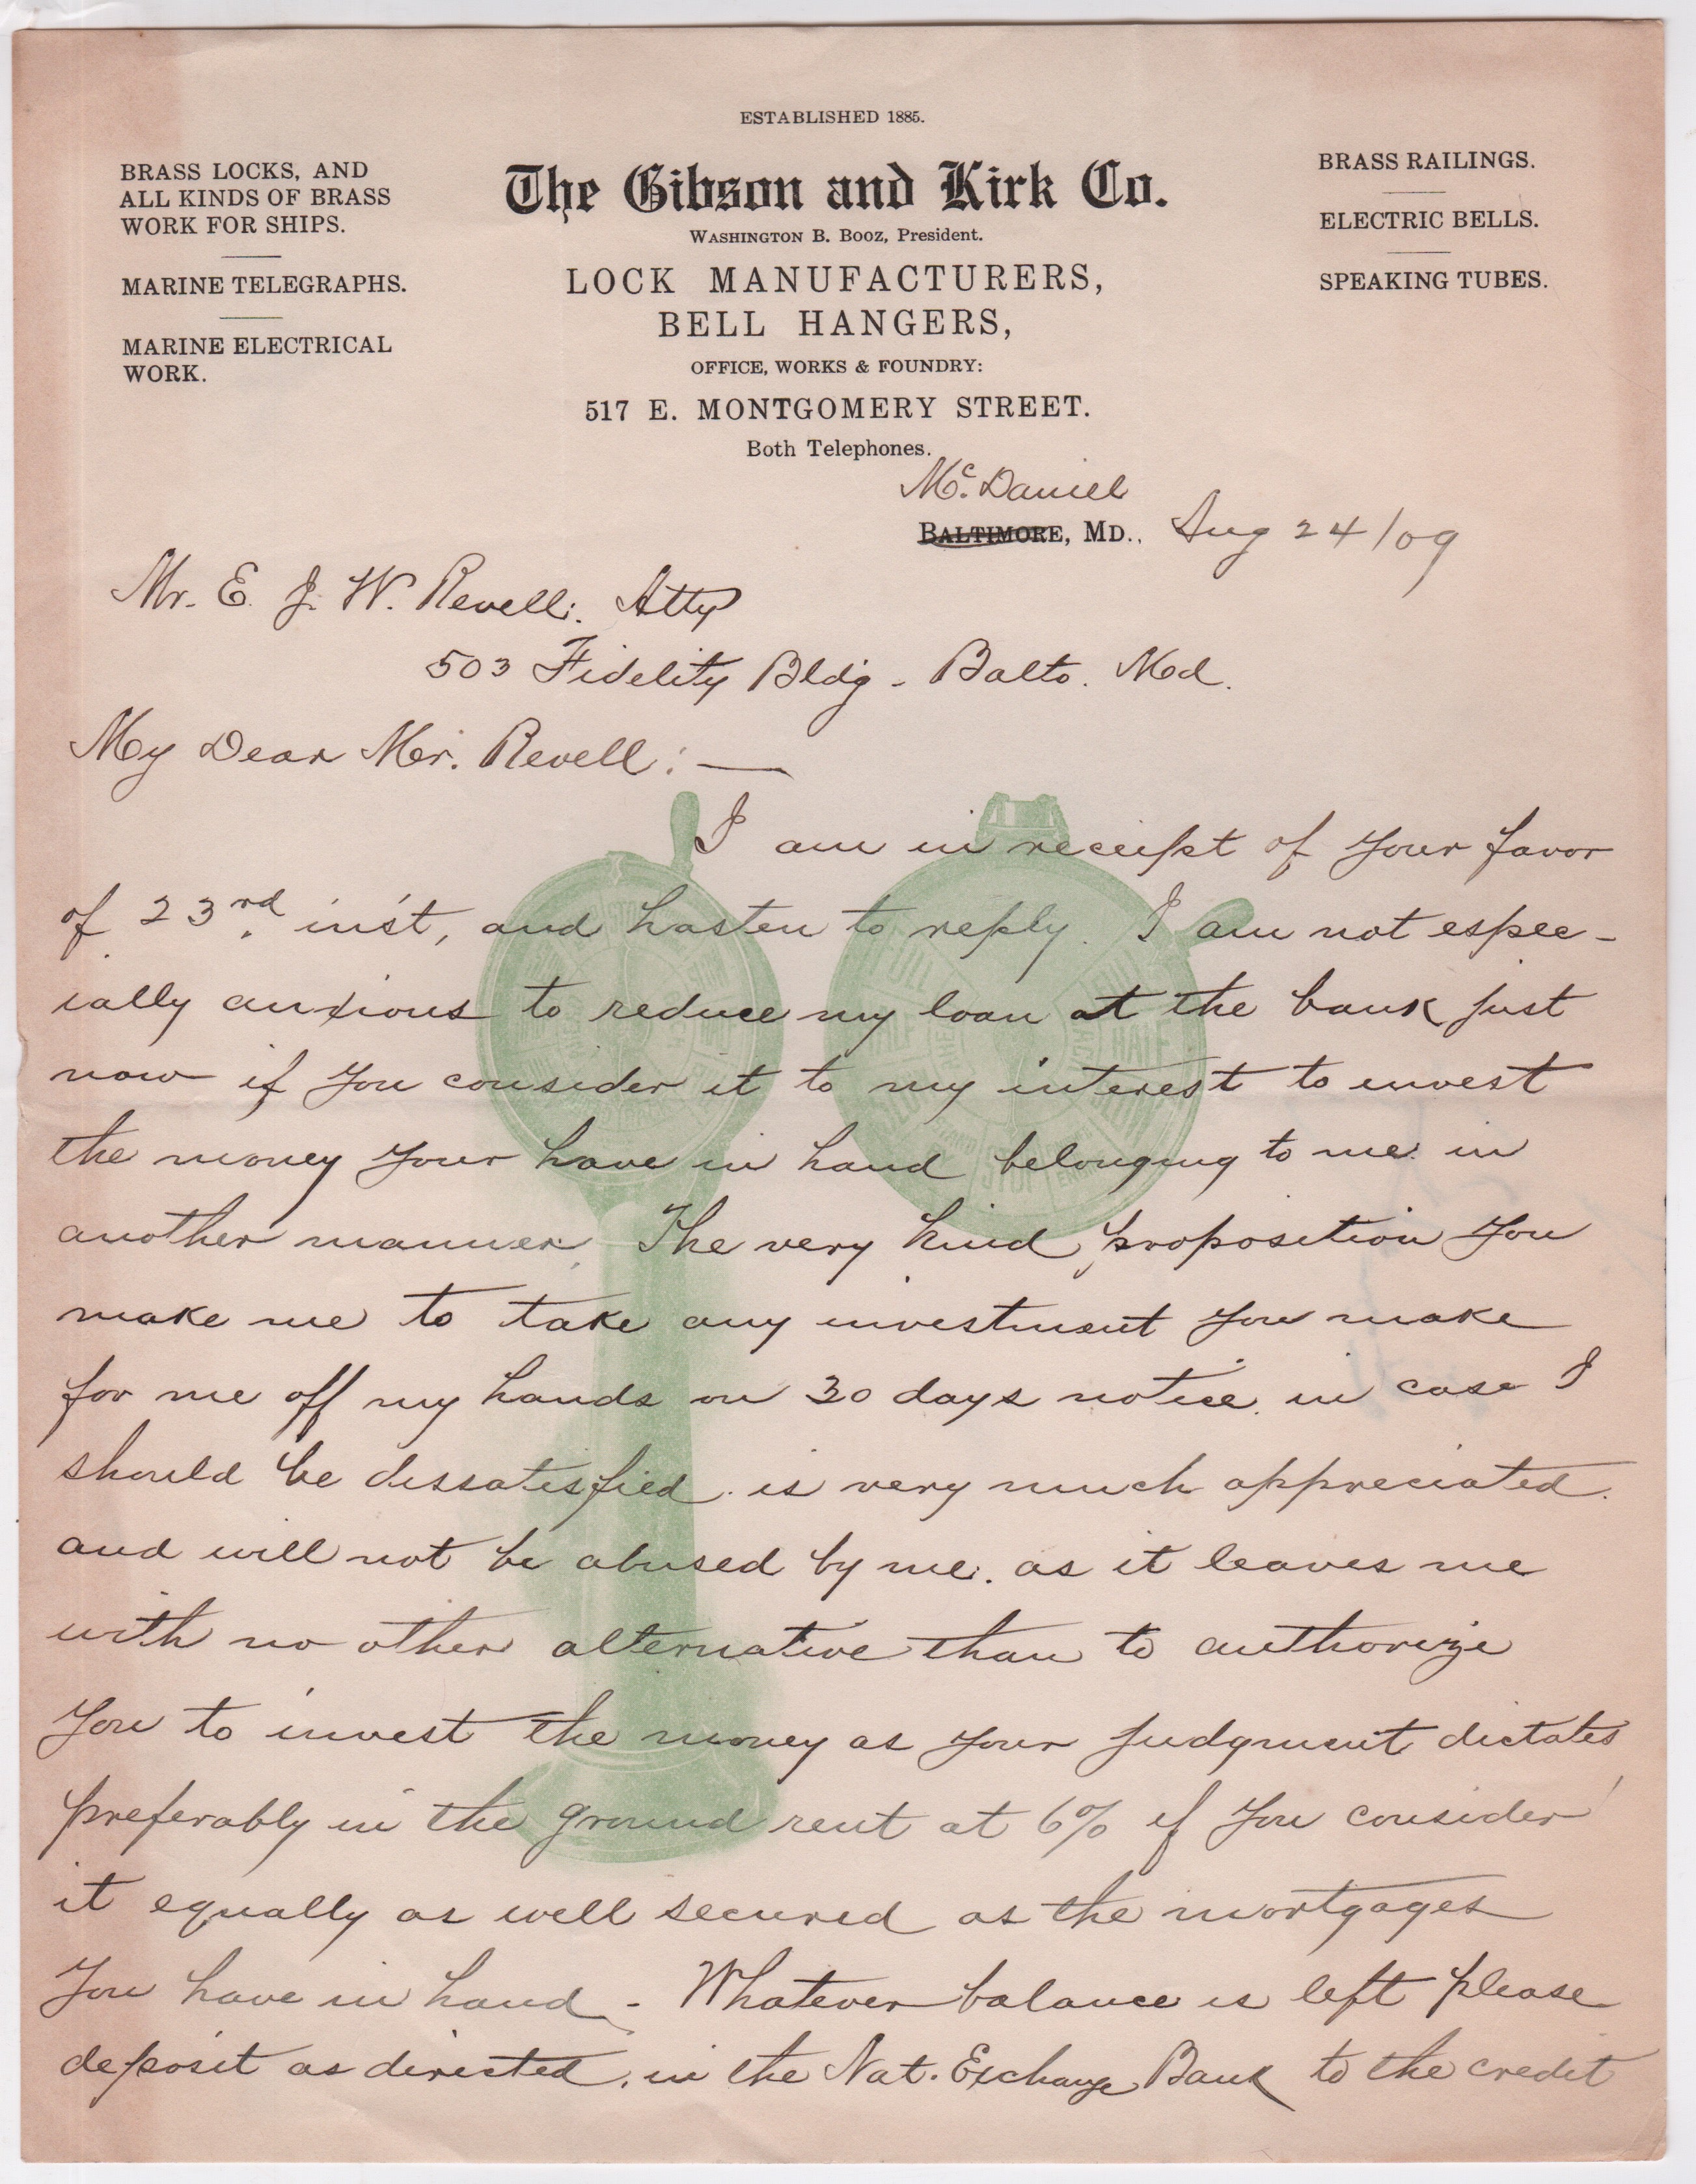 ESTABLISHED 1885.
The Gibson and Kirk Co.
WASHINGTON B. BOOZ, President.
LOCK MANUFACTURERS,
BELL HANGERS,
OFFICE, WORKS & FOUNDRY:
517 E. MONTGOMERY STREET.
Both Telephones.
BRASS LOCKS, AND
ALL KINDS OF BRASS
WORK FOR SHIPS.
MARINE TELEGRAPHS.
MARINE ELECTRICAL
WORK.
BRASS RAILINGS.
ELECTRIC BELLS.
SPEAKING TUBES.
McDaniel
BALTIMORE, MD., Aug 24/09
Mr. E. J. W. Revell. Atty
503 Fidelity Bldg - Balto. Md.
My Dear Mr. Revell: —
I am in receipt of your favor
of 23rd. in'st, and hasten to reply. I am not espec-
ially anxious to reduce my loan at the bank just
now if you consider it to my interest to invest
the money your have in hand belonging to me in
another manner. The very kind proposition you
make me to take any investment you make
for me off my hands on 30 days notice in case I
should be dissatisfied is very much appreciated.
and will not be abused by me. as it leaves me
with no other alternative than to authorize
you to invest the money as your judgment dictates,
preferably in the ground rent at 6% if you consider
it equally as well secured as the mortgages
you have in hand - Whatever balance is left please
deposit as directed, in the Nat. Exchange Bank to the credit
FULL
HALF
SLOW
STAND
STOP
HALF